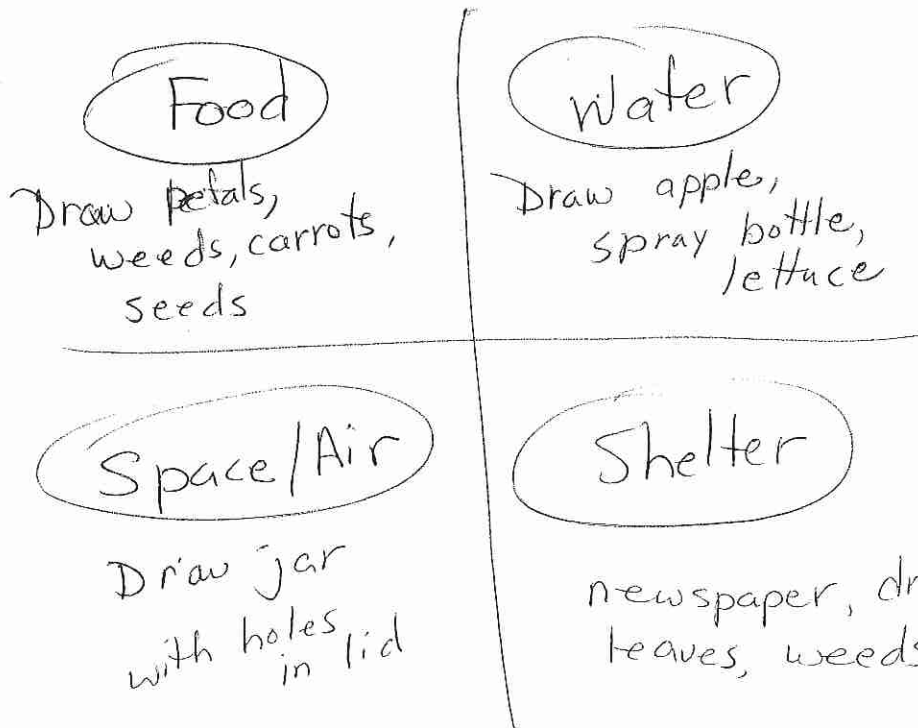 Food
Draw petals,
weeds, carrots,
seeds
Water
Draw apple,
spray bottle,
lettuce
Space/Air
Draw jar
with holes
in lid
Shelter
newspaper,
leaves, weeds